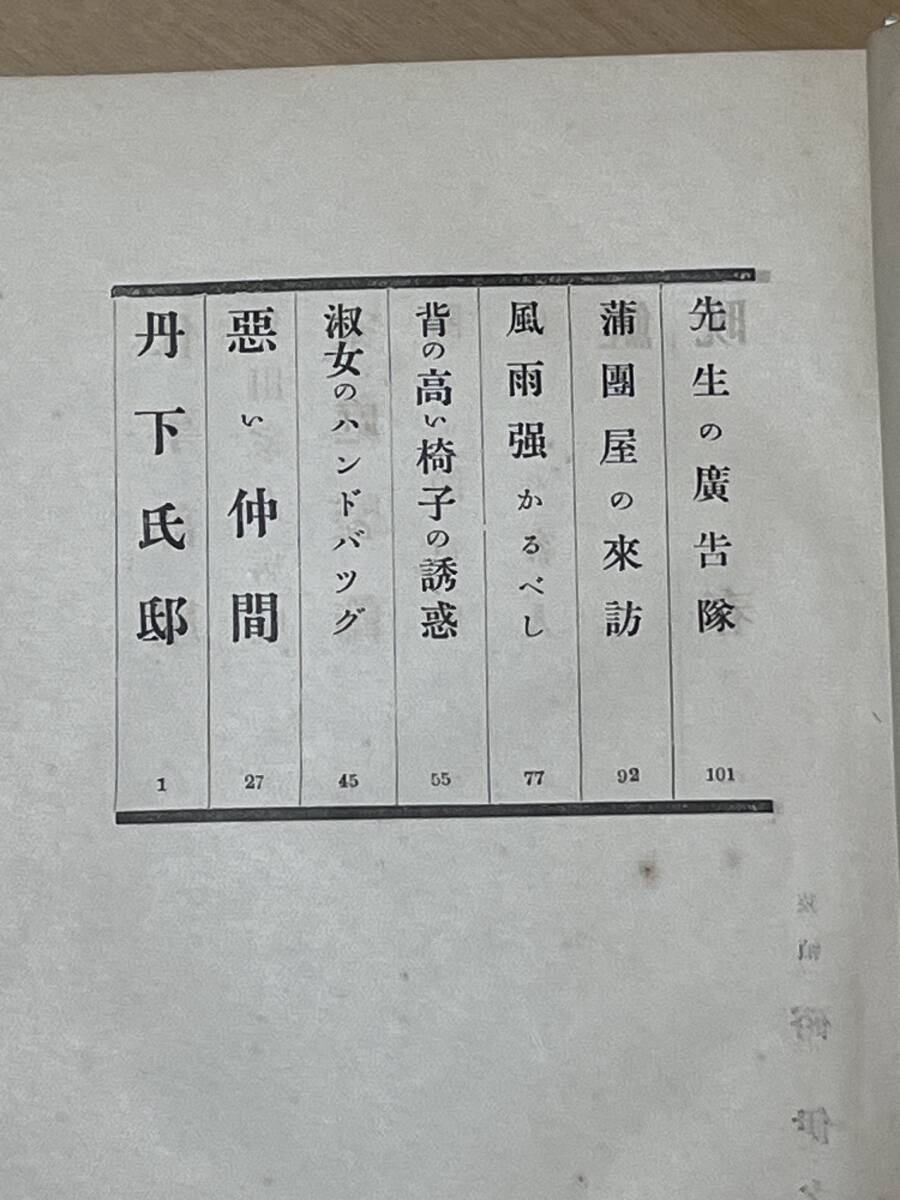 先生の廣告隊 101
蒲團屋の來訪 92
風雨强かるべし 77
背の高い椅子の誘惑 55
淑女のハンドバッグ 45
惡い仲間 27
丹下氏邸 1